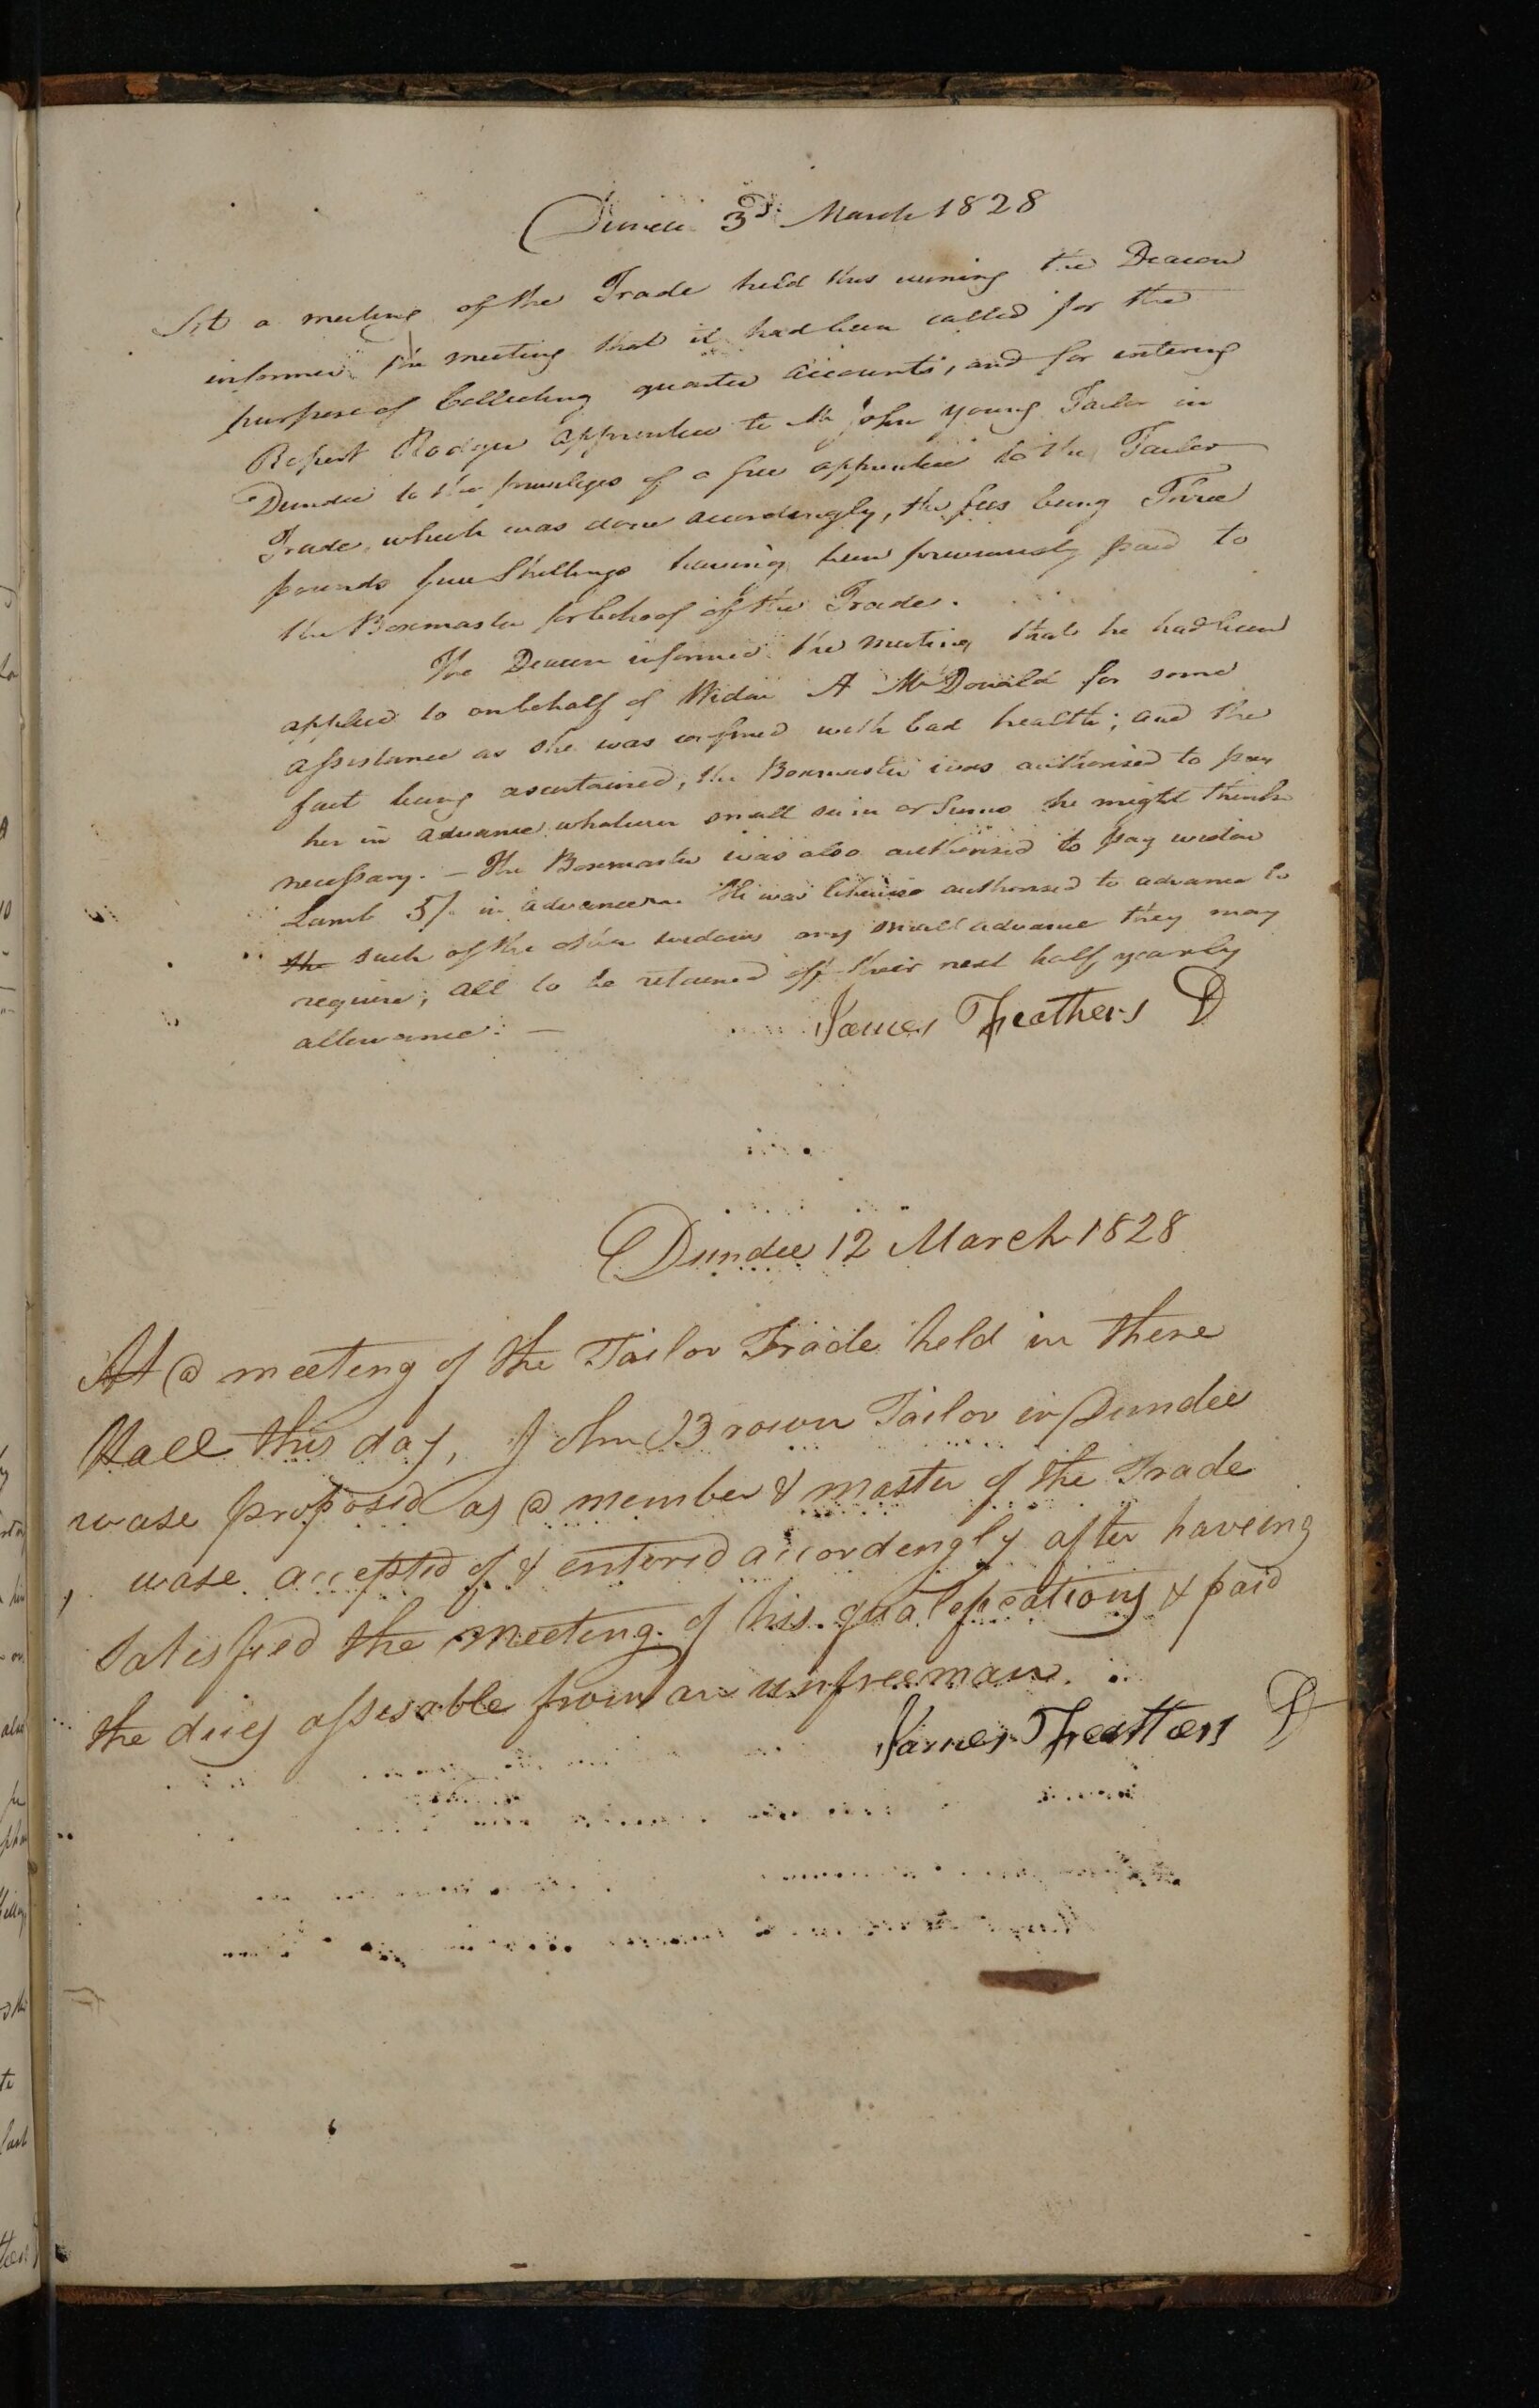 Dundee 3d March 1828
At a meeting of the Trade held this evening the Deacon
informed the meeting that it had been called for the
purpose of Collecting quarter accounts, and for entering
Robert Rodger apprentice to Mr John Young Tailor in
Dundee to the priviliges of a free apprentice to the Tailor
Trade, which was done accordingly, the fees being Three
pounds five Shillings having been previously paid to
the Boxmaster for behoof of the Trade.
The Deacon informed the meeting that he had been
applied to on behalf of Widow A McDonald for some
assistance as she was confined with bad health; and the
fact being ascertained, the Boxmaster was authorised to pay
her in advance whatever small sum or sums he might think
necessary. — The Boxmaster was also authorised to pay widow
Lamb 5/. in advance. He was likewise authorised to advance to
the such of the other widows any small advance they may
require; all to be retained off their next half yearly
allowance. —
James Feathers D
Dundee 12 March 1828
At a meeting of the Tailor Trade held in there
Hall this day, John Brown Tailor in Dundee
wase proposed as a member & master of the Trade
wase accepted of & entered accordengly after haveing
satisfied the meeting of his qualefications & paid
the dues assesable from an unfreeman.
James Feathers D